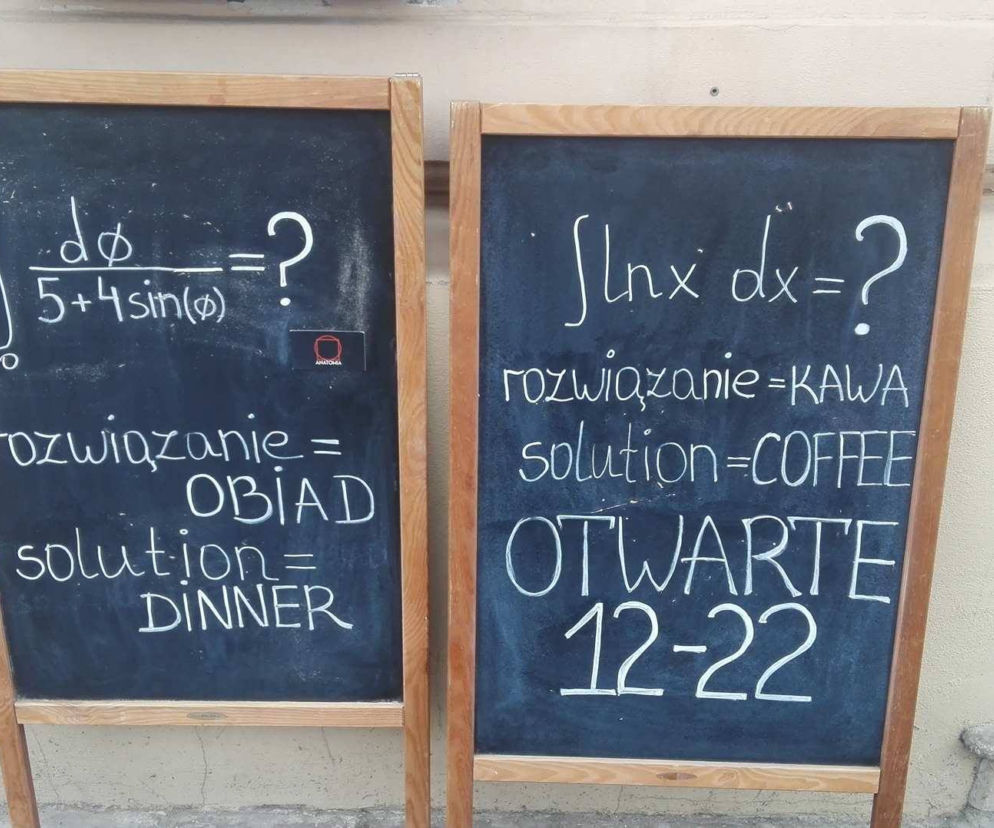 ∫₀ dø / (5+4sin(ø)) = ?
ANATOMIA
rozwiązanie =
OBiAD
solution =
DiNNER
∫lnx dx = ?
rozwiązanie = KAWA
solution = COFFEE
OTWARTE
12-22